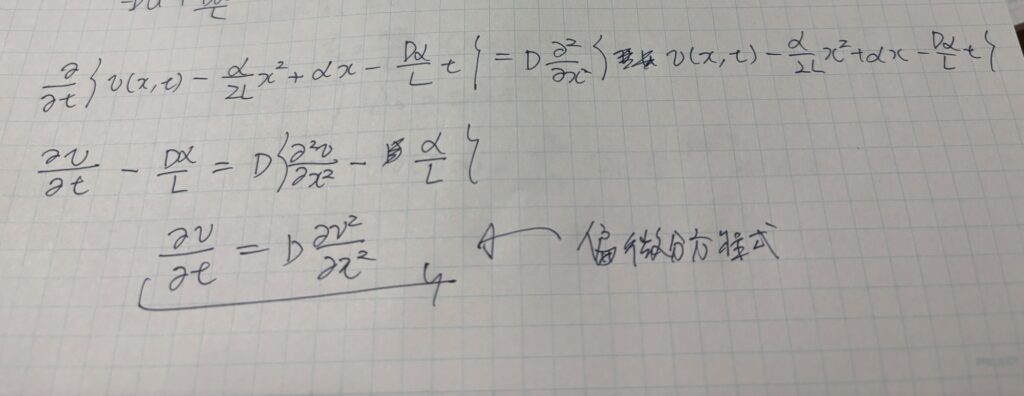 ∂/∂t { v(x,t) - α/2L x² + αx - Dα/L t } = D ∂²/∂x² { v(x,t) - α/2L x² + αx - Dα/L t }
∂v/∂t - Dα/L = D { ∂²v/∂x² - α/L }
∂v/∂t = D ∂v²/∂x² ← 偏微分方程式